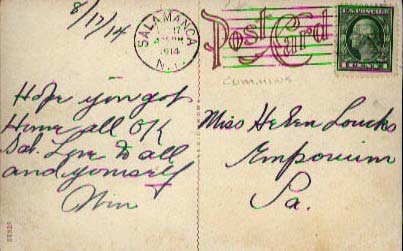 8/17/14
SALAMANCA
17
1914
N.Y.
Post Card
U.S. POSTAGE
1 CENT 1
CUMMINS
Hope you got
Home all OK
Sat. Love to all
and yourself
Win
Miss Helen Loucks
Emporium
Pa.